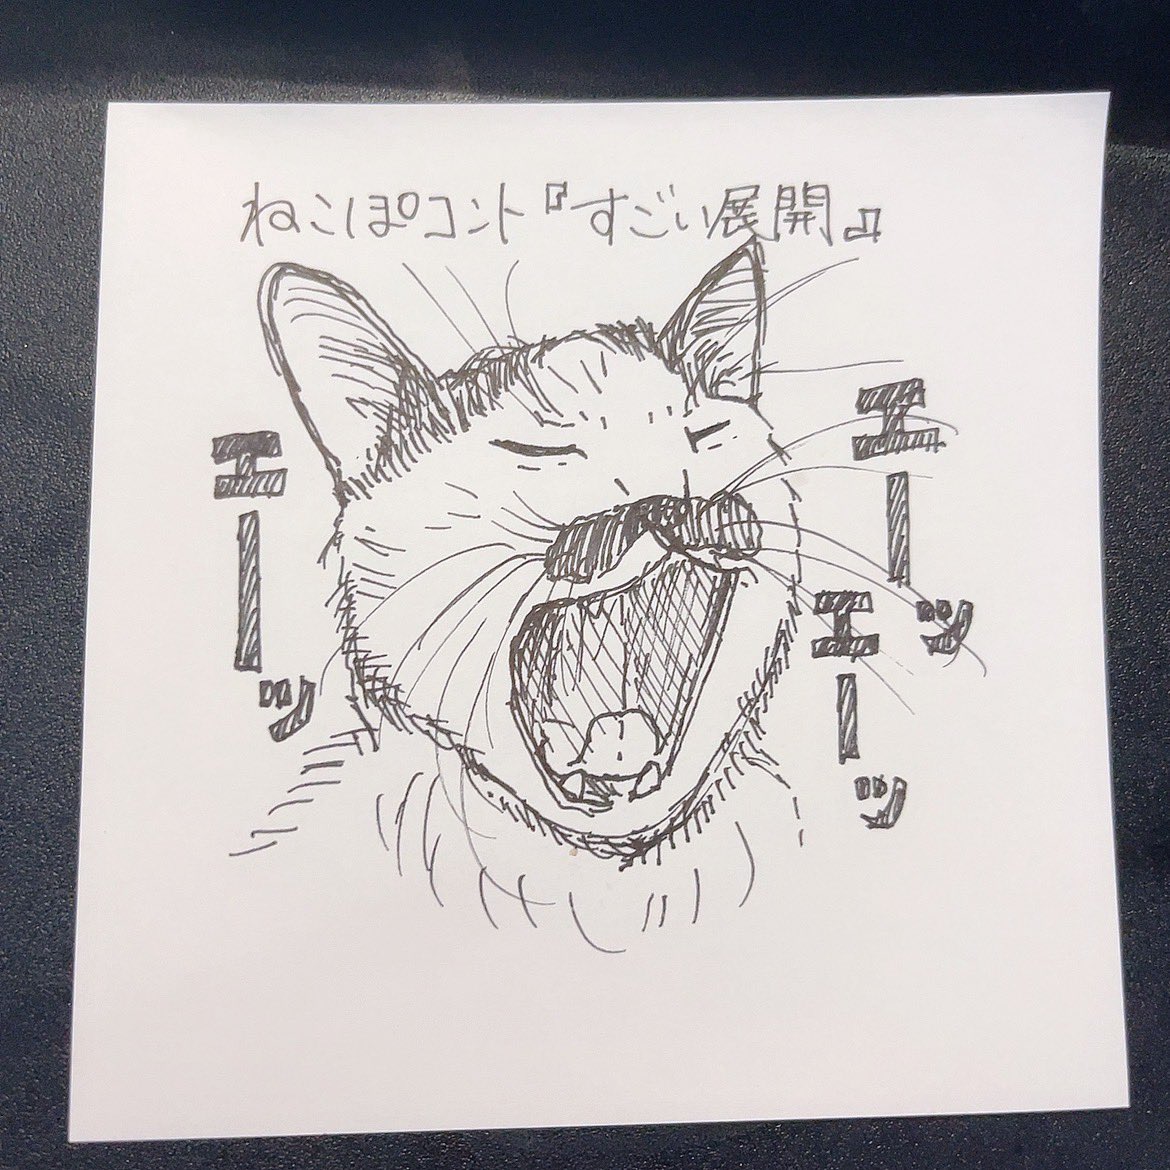 ねこぽコント『すごい展開』
エーッ
エーッ
エーッ